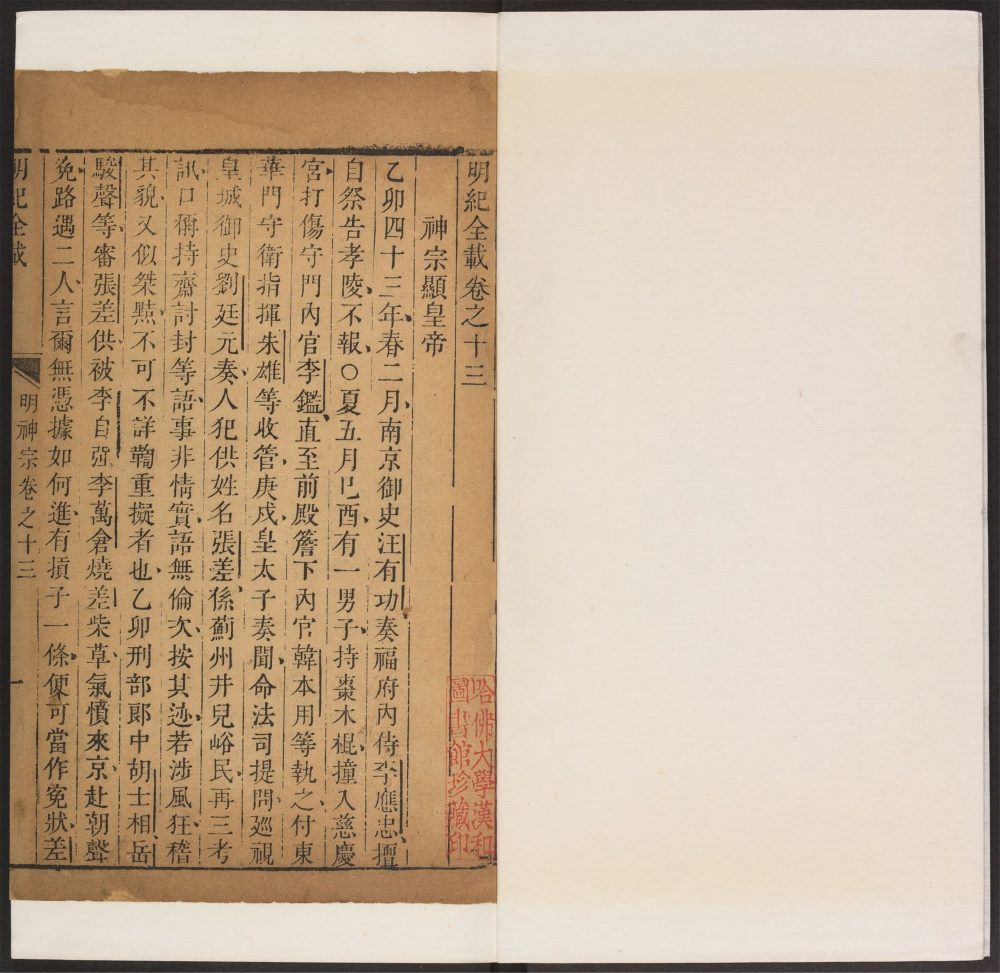 明紀全載卷之十三
神宗顯皇帝
乙卯四十三年春二月南京御史汪有功奏福府內侍李應忠擅
自祭告孝陵不報○夏五月己酉有一男子持棗木棍撞入慈慶
宮打傷守門內官李鑑直至前殿簷下內官韓本用等執之付東
華門守衛指揮朱雄等收管庚戌皇太子奏聞命法司提問巡視
皇城御史劉廷元奏人犯供姓名張差係薊州井兒峪民再三考
訊口稱持齋討封等語事非情實語無倫次按其迹若涉風狂稽
其貌又似桀黠不可不詳鞫重擬者也乙卯刑部郎中胡士相岳
駿聲等審張差供被李自强李萬倉燒差柴草氣憤來京赴朝聲
寃路遇二人言爾無憑據如何進有損子一條便可當作寃狀差
明紀全載
明神宗卷之十三
一
哈佛大學漢和
圖書館珍藏印